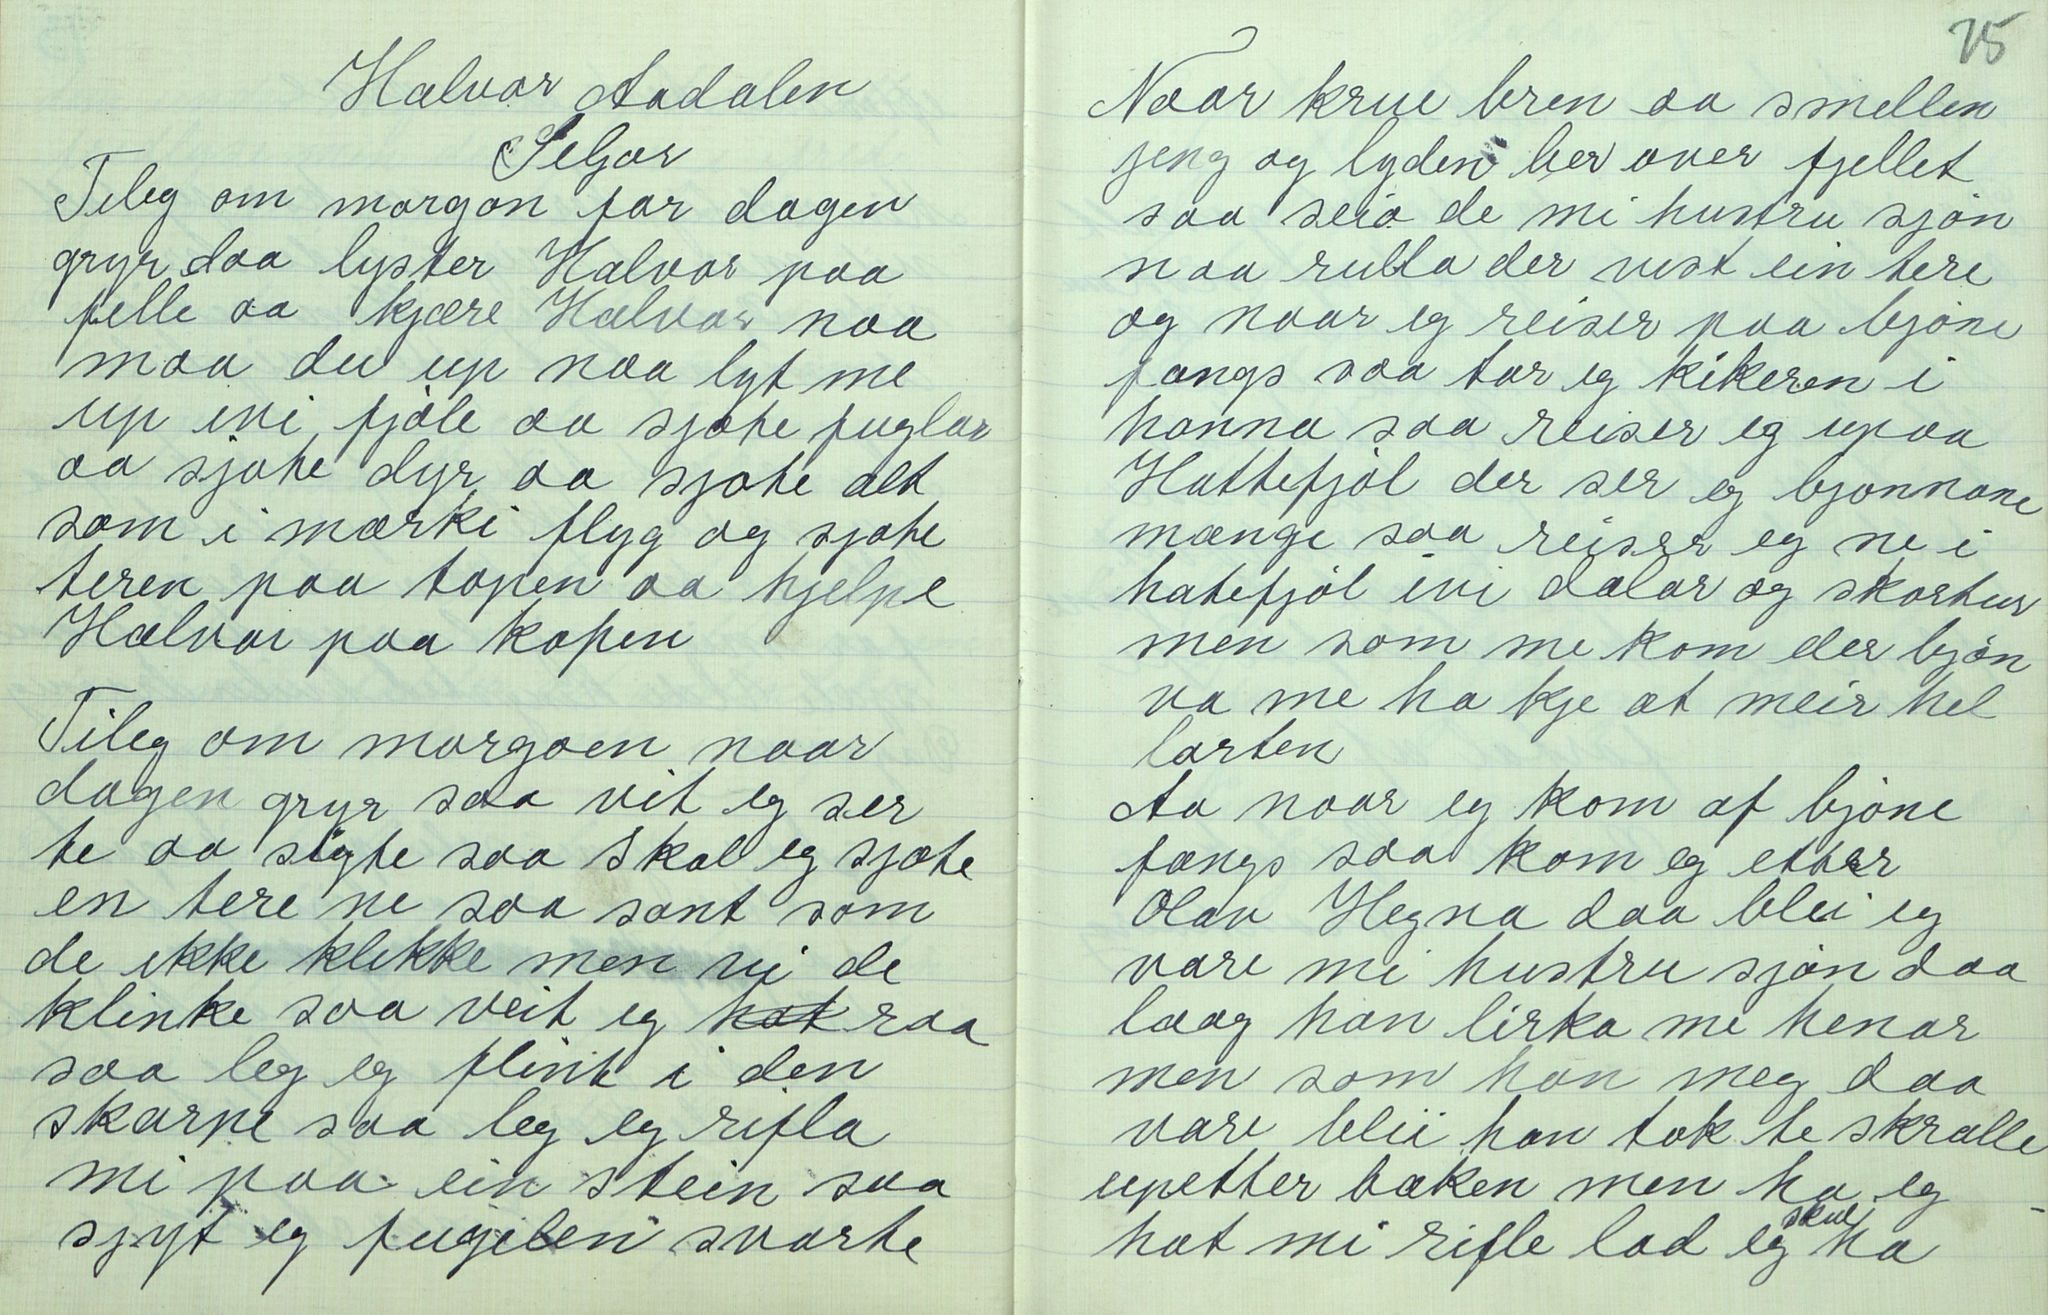 Halvor Aadalen
Seljor
Tileg om morgon for dagen
gryr daa lyster Halvor paa
felle aa kjære Halvor naa
maa du up naa lyt me
up ivi fjöle aa sjote fuglar
aa sjote dyr aa sjote alt
som i mærki flyg og sjote
teren paa topen aa hjelpe
Halvor paa kopen
Tileg om morgoen naar
dagen gryr saa vit eg ser
te aa sigte saa skal eg sjote
en tere ne saa sant som
de ikke klikke men vi de
klinke saa veit eg hat raa
saa leg eg flint i den
skarpe saa leg eg rifla
mi paa ein stein saa
sjyt eg fugelen svarte
75
Naar krue bren aa smellen
jeng og lyden ber over fjellet
saa seia de mi hustru sjön
naa rulla der vist ein tere
og naar eg reiser paa bjöne
fangs saa tar eg kikeren i
hanna saa reiser eg upaa
Hattefjöl der ser eg bjonnane
mænge saa reiser eg ne i
hatefjöl ivi dalar og skortur
men som me kom der bjön
va me ha kje at meir hel
larten
Aa naar eg kom af bjöne
fangs saa kom eg etter
Olav Hegna daa blei eg
vare mi hustru sjön daa
laag han lirka me henar
men som han meg daa
vare blii han tok te skralle
upetter baken men ha eg
hat mi rifle lad eg skul ha